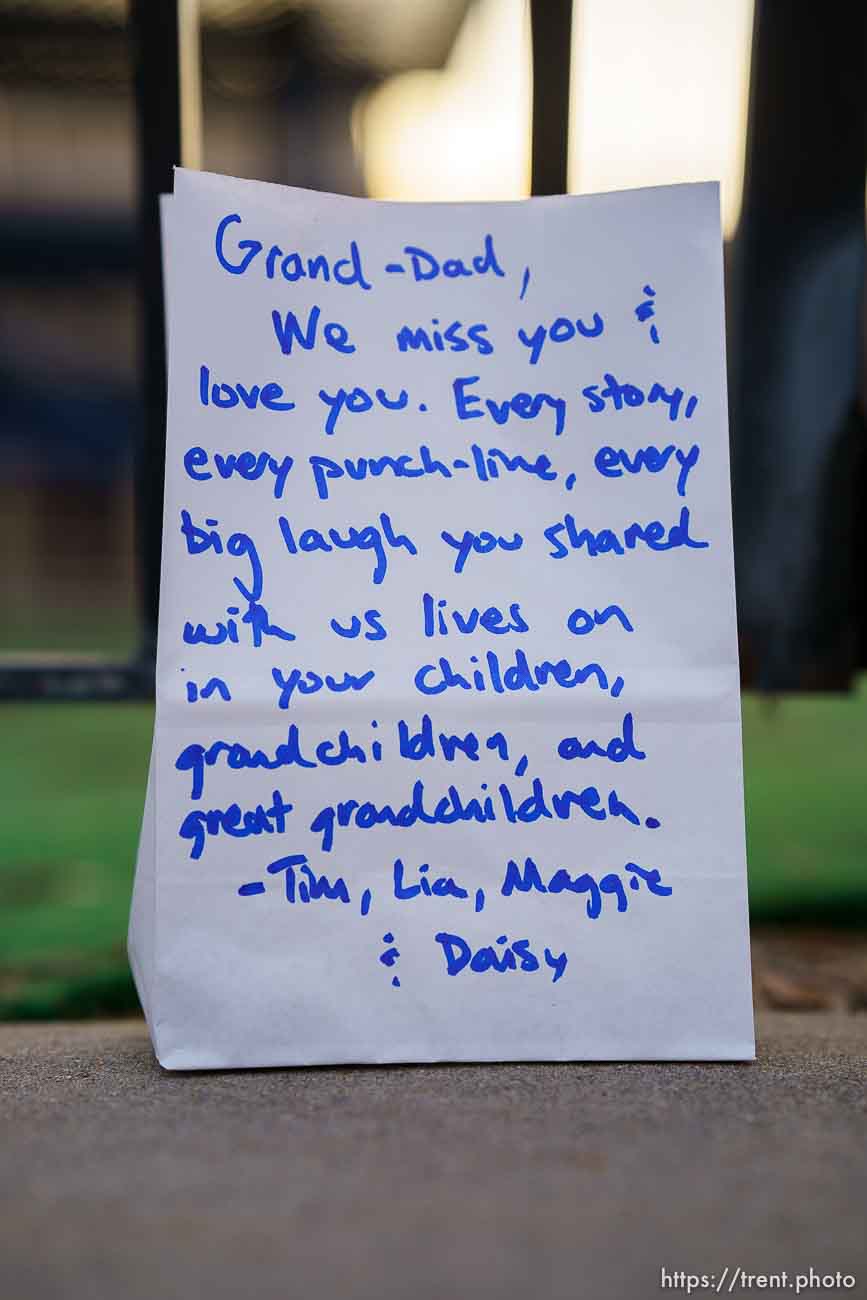 Grand-Dad,
We miss you &
love you. Every story,
every punch-line, every
big laugh you shared
with us lives on
in your children,
grandchildren, and
great grandchildren.
-Tim, Lia, Maggie
& Daisy
https://trent.photo